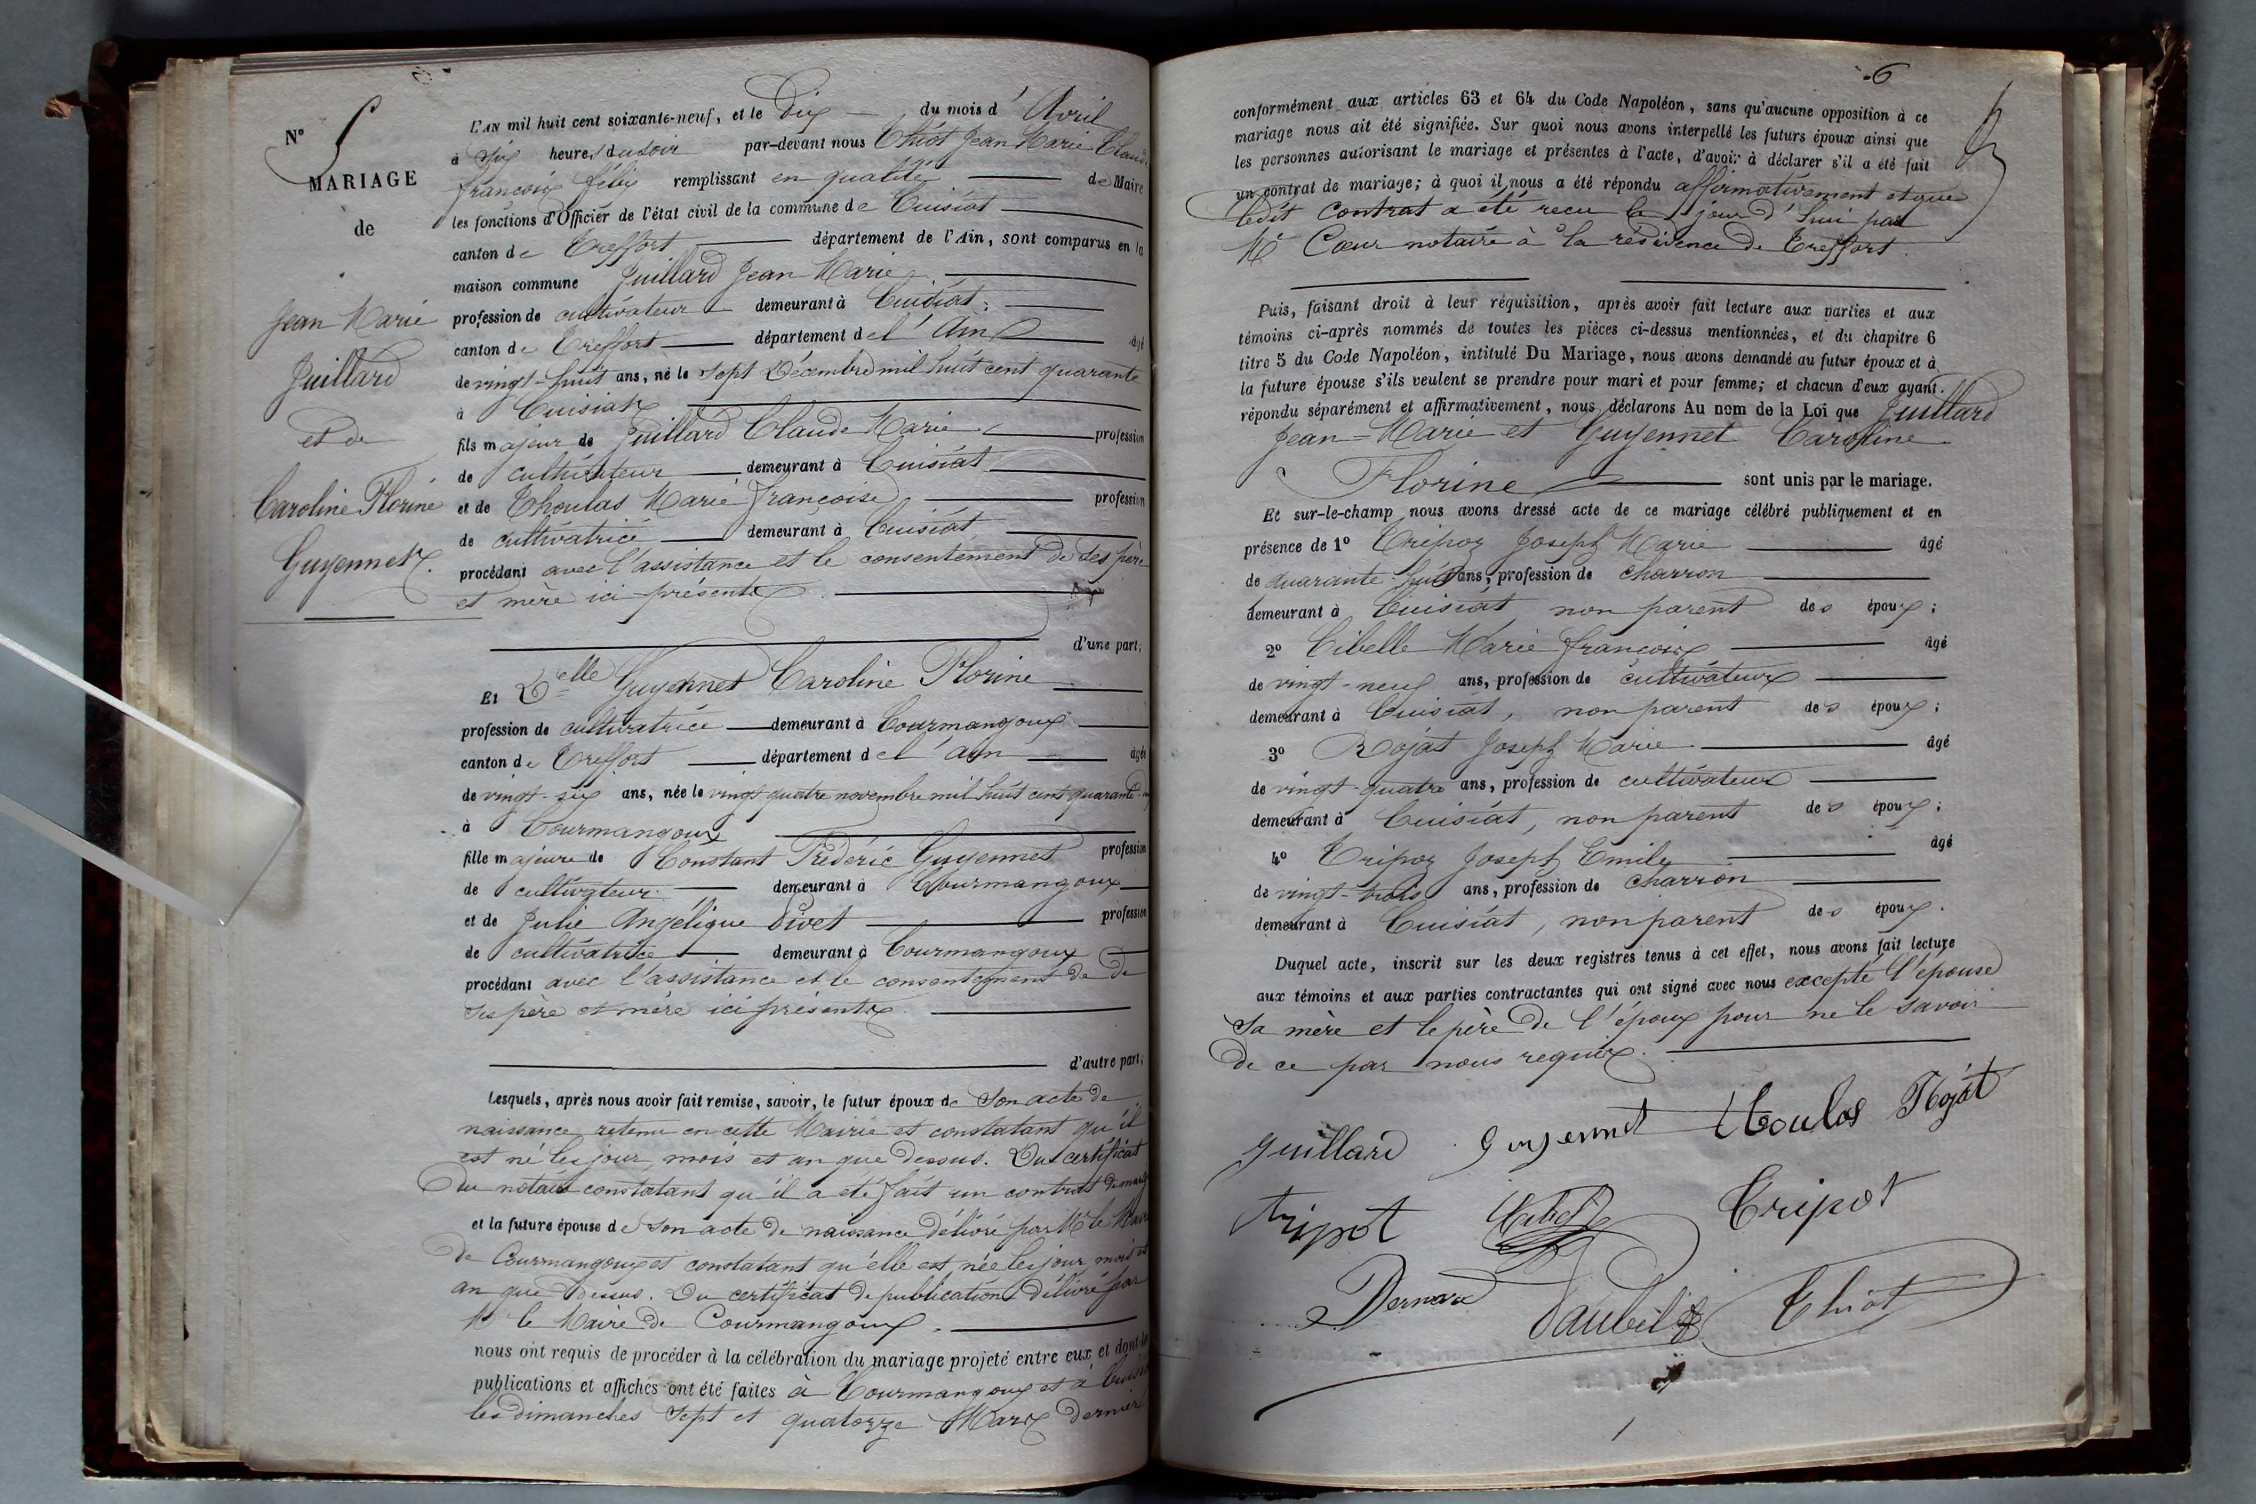 N° 5
MARIAGE
de
Jean Marie
Juillard
et de
Caroline Florine
Guyennet.
L'AN mil huit cent soixante-neuf, et le Dix du mois d'Avril
à six heures du soir par-devant nous Thiot Jean Marie Claude
françois félix remplissant en qualité de Maire
les fonctions d'Officier de l'état civil de la commune de Cuisiat
canton de Treffort département de l'Ain, sont comparus en la
maison commune Juillard Jean Marie
profession de cultivateur demeurant à Cuisiat,
canton de Treffort département de l'Ain âgé
de vingt-huit ans, né le sept Décembre mil huit cent quarante
à Cuisiat
fils majeur de Juillard Claude Marie profession
de cultivateur demeurant à Cuisiat
et de Thoulas Marie françoise profession
de cultivatrice demeurant à Cuisiat
procédant avec l'assistance et le consentement de ses père
et mère ici présents
d'une part;
Et Delle Guyennet Caroline Florine
profession de cultivatrice demeurant à Courmangoux
canton de Treffort département de l'Ain âgée
de vingt-six ans, née le vingt quatre novembre mil huit cent quarante
à Courmangoux
fille majeure de Constant Frédéric Guyennet profession
de cultivateur demeurant à Courmangoux
et de Julie Angélique Pivet profession
de cultivatrice demeurant à Courmangoux
procédant avec l'assistance et le consentement de de
ses père et mère ici présents
d'autre part;
Lesquels, après nous avoir fait remise, savoir, le futur époux de son acte de
naissance retenu en cette Mairie et constatant qu'il
est né les jour, mois et an que dessus. Du certificat
du notaire constatant qu'il a été fait un contrat de
et la future épouse de son acte de naissance délivré par Mr le Maire
de Courmangoux et constatant qu'elle est née les jour, mois et
an que dessus. Du certificat de publications délivré par
Mr le Maire de Courmangoux.
nous ont requis de procéder à la célébration du mariage projeté entre eux, et dont les
publications et affiches ont été faites à Courmangoux et à Cuisiat
les dimanches sept et quatorze Mars dernier
6
conformément aux articles 63 et 64 du Code Napoléon, sans qu'aucune opposition à ce
mariage nous ait été signifiée. Sur quoi nous avons interpellé les futurs époux ainsi que
les personnes autorisant le mariage et présentes à l'acte, d'avoir à déclarer s'il a été fait
un contrat de mariage; à quoi il nous a été répondu affirmativement et que
ledit contrat a été recu le jour d'hui par
Me Cœur notaire à la résidence de Treffort.
Puis, faisant droit à leur réquisition, après avoir fait lecture aux parties et aux
témoins ci-après nommés de toutes les pièces ci-dessus mentionnées, et du chapitre 6
titre 5 du Code Napoléon, intitulé Du Mariage, nous avons demandé au futur époux et à
la future épouse s'ils veulent se prendre pour mari et pour femme; et chacun d'eux ayant
répondu séparément et affirmativement, nous déclarons Au nom de la Loi que Juillard
Jean-Marie et Guyennet Caroline
Florine sont unis par le mariage.
Et sur-le-champ nous avons dressé acte de ce mariage célébré publiquement et en
présence de 1° Tripoz Joseph Marie âgé
de quarante-huit ans, profession de charron
demeurant à Cuisiat, non parent des époux;
2° Cibelle Marie françois âgé
de vingt-neuf ans, profession de cultivateur
demeurant à Cuisiat, non parent des époux;
3° Rojat Joseph Marie âgé
de vingt-quatre ans, profession de cultivateur
demeurant à Cuisiat, non parent des époux;
4° Tripoz Joseph Emile âgé
de vingt-trois ans, profession de charron
demeurant à Cuisiat, non parent des époux.
Duquel acte, inscrit sur les deux registres tenus à cet effet, nous avons fait lecture
aux témoins et aux parties contractantes qui ont signé avec nous excepté l'épouse
sa mère et le père de l'époux pour ne le savoir
de ce par nous requis.
Juillard Guyennet Thoulas Rojat
tripot Tripot
Thiot